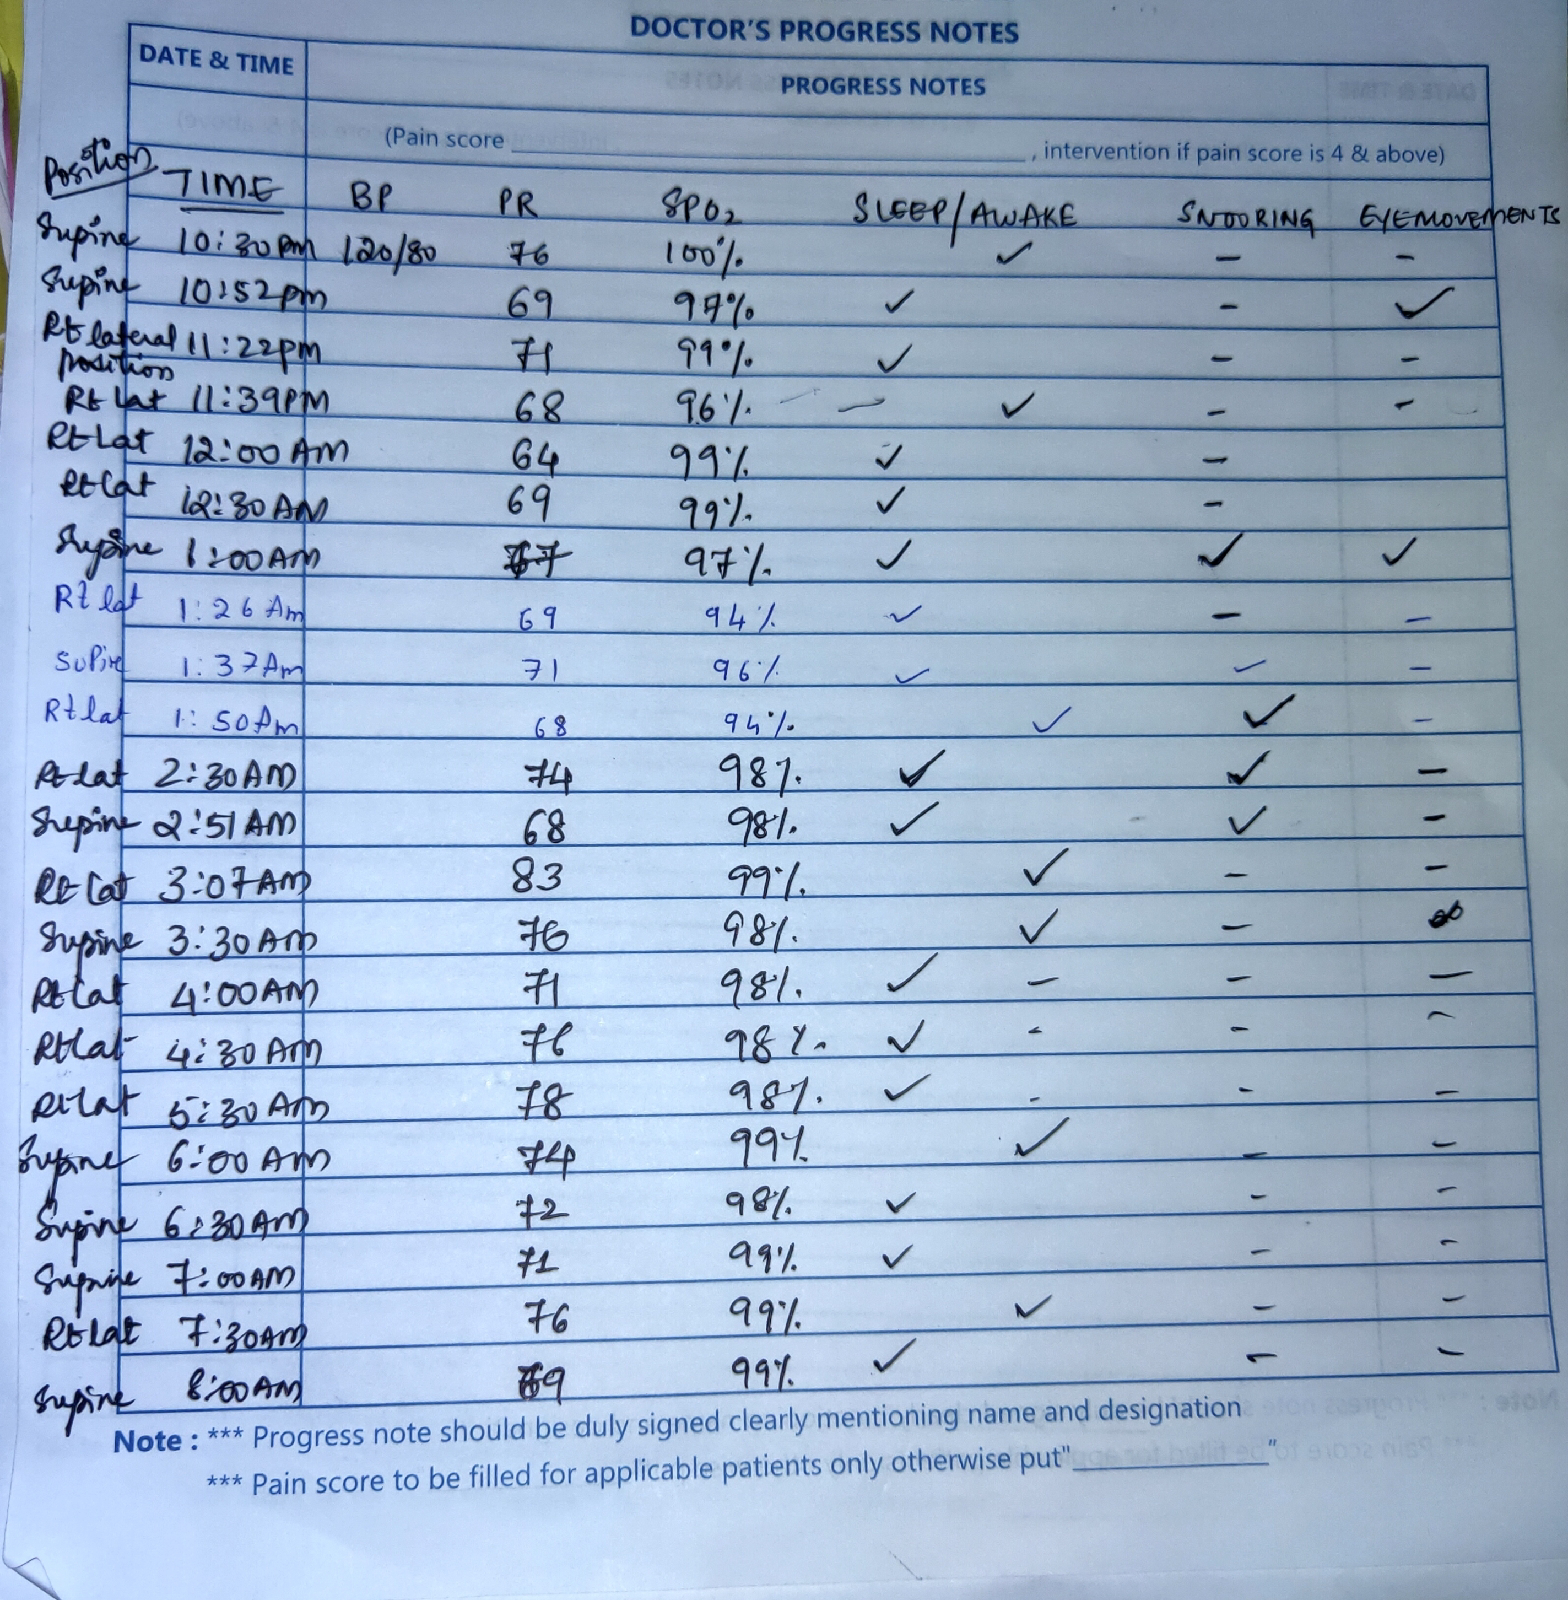 DOCTOR'S PROGRESS NOTES
DATE & TIME PROGRESS NOTES
(Pain score ____________________, intervention if pain score is 4 & above)
Position TIME BP PR SPO₂ SLEEP/AWAKE SNOORING EYEMOVEMENTS
Supine 10:30pm 120/80 76 100% ✓ - -
Supine 10:52pm 69 97% ✓ - ✓
Rt lateral position 11:22pm 71 99% ✓ - -
Rt lat 11:39PM 68 96% - ✓ - -
Rt Lat 12:00 AM 64 99% ✓ -
Rt Lat 12:30 AM 69 99% ✓ -
Supine 1:00AM 97% ✓ ✓ ✓
Rt lat 1:26 Am 69 94% ✓ - -
SuPine 1:37Am 71 96% ✓ ✓ -
Rt lat 1:50Am 68 94% ✓ ✓ -
Rt lat 2:30AM 74 98% ✓ ✓ -
Supine 2:51AM 68 98% ✓ ✓ -
Rt Lat 3:07AM 83 99% ✓ - -
Supine 3:30AM 76 98% ✓ -
Rt Lat 4:00AM 71 98% ✓ - - -
Rt Lat 4:30 AM 98% ✓ - - -
Rt lat 5:30 AM 78 98% ✓ - - -
Supine 6:00 AM 74 99% ✓ - -
Supine 6:30AM 72 98% ✓ - -
Supine 7:00AM 71 99% ✓ - -
Rt Lat 7:30AM 76 99% ✓ - -
Supine 8:00AM 69 99% ✓ - -
Note : *** Progress note should be duly signed clearly mentioning name and designation
*** Pain score to be filled for applicable patients only otherwise put"__________"